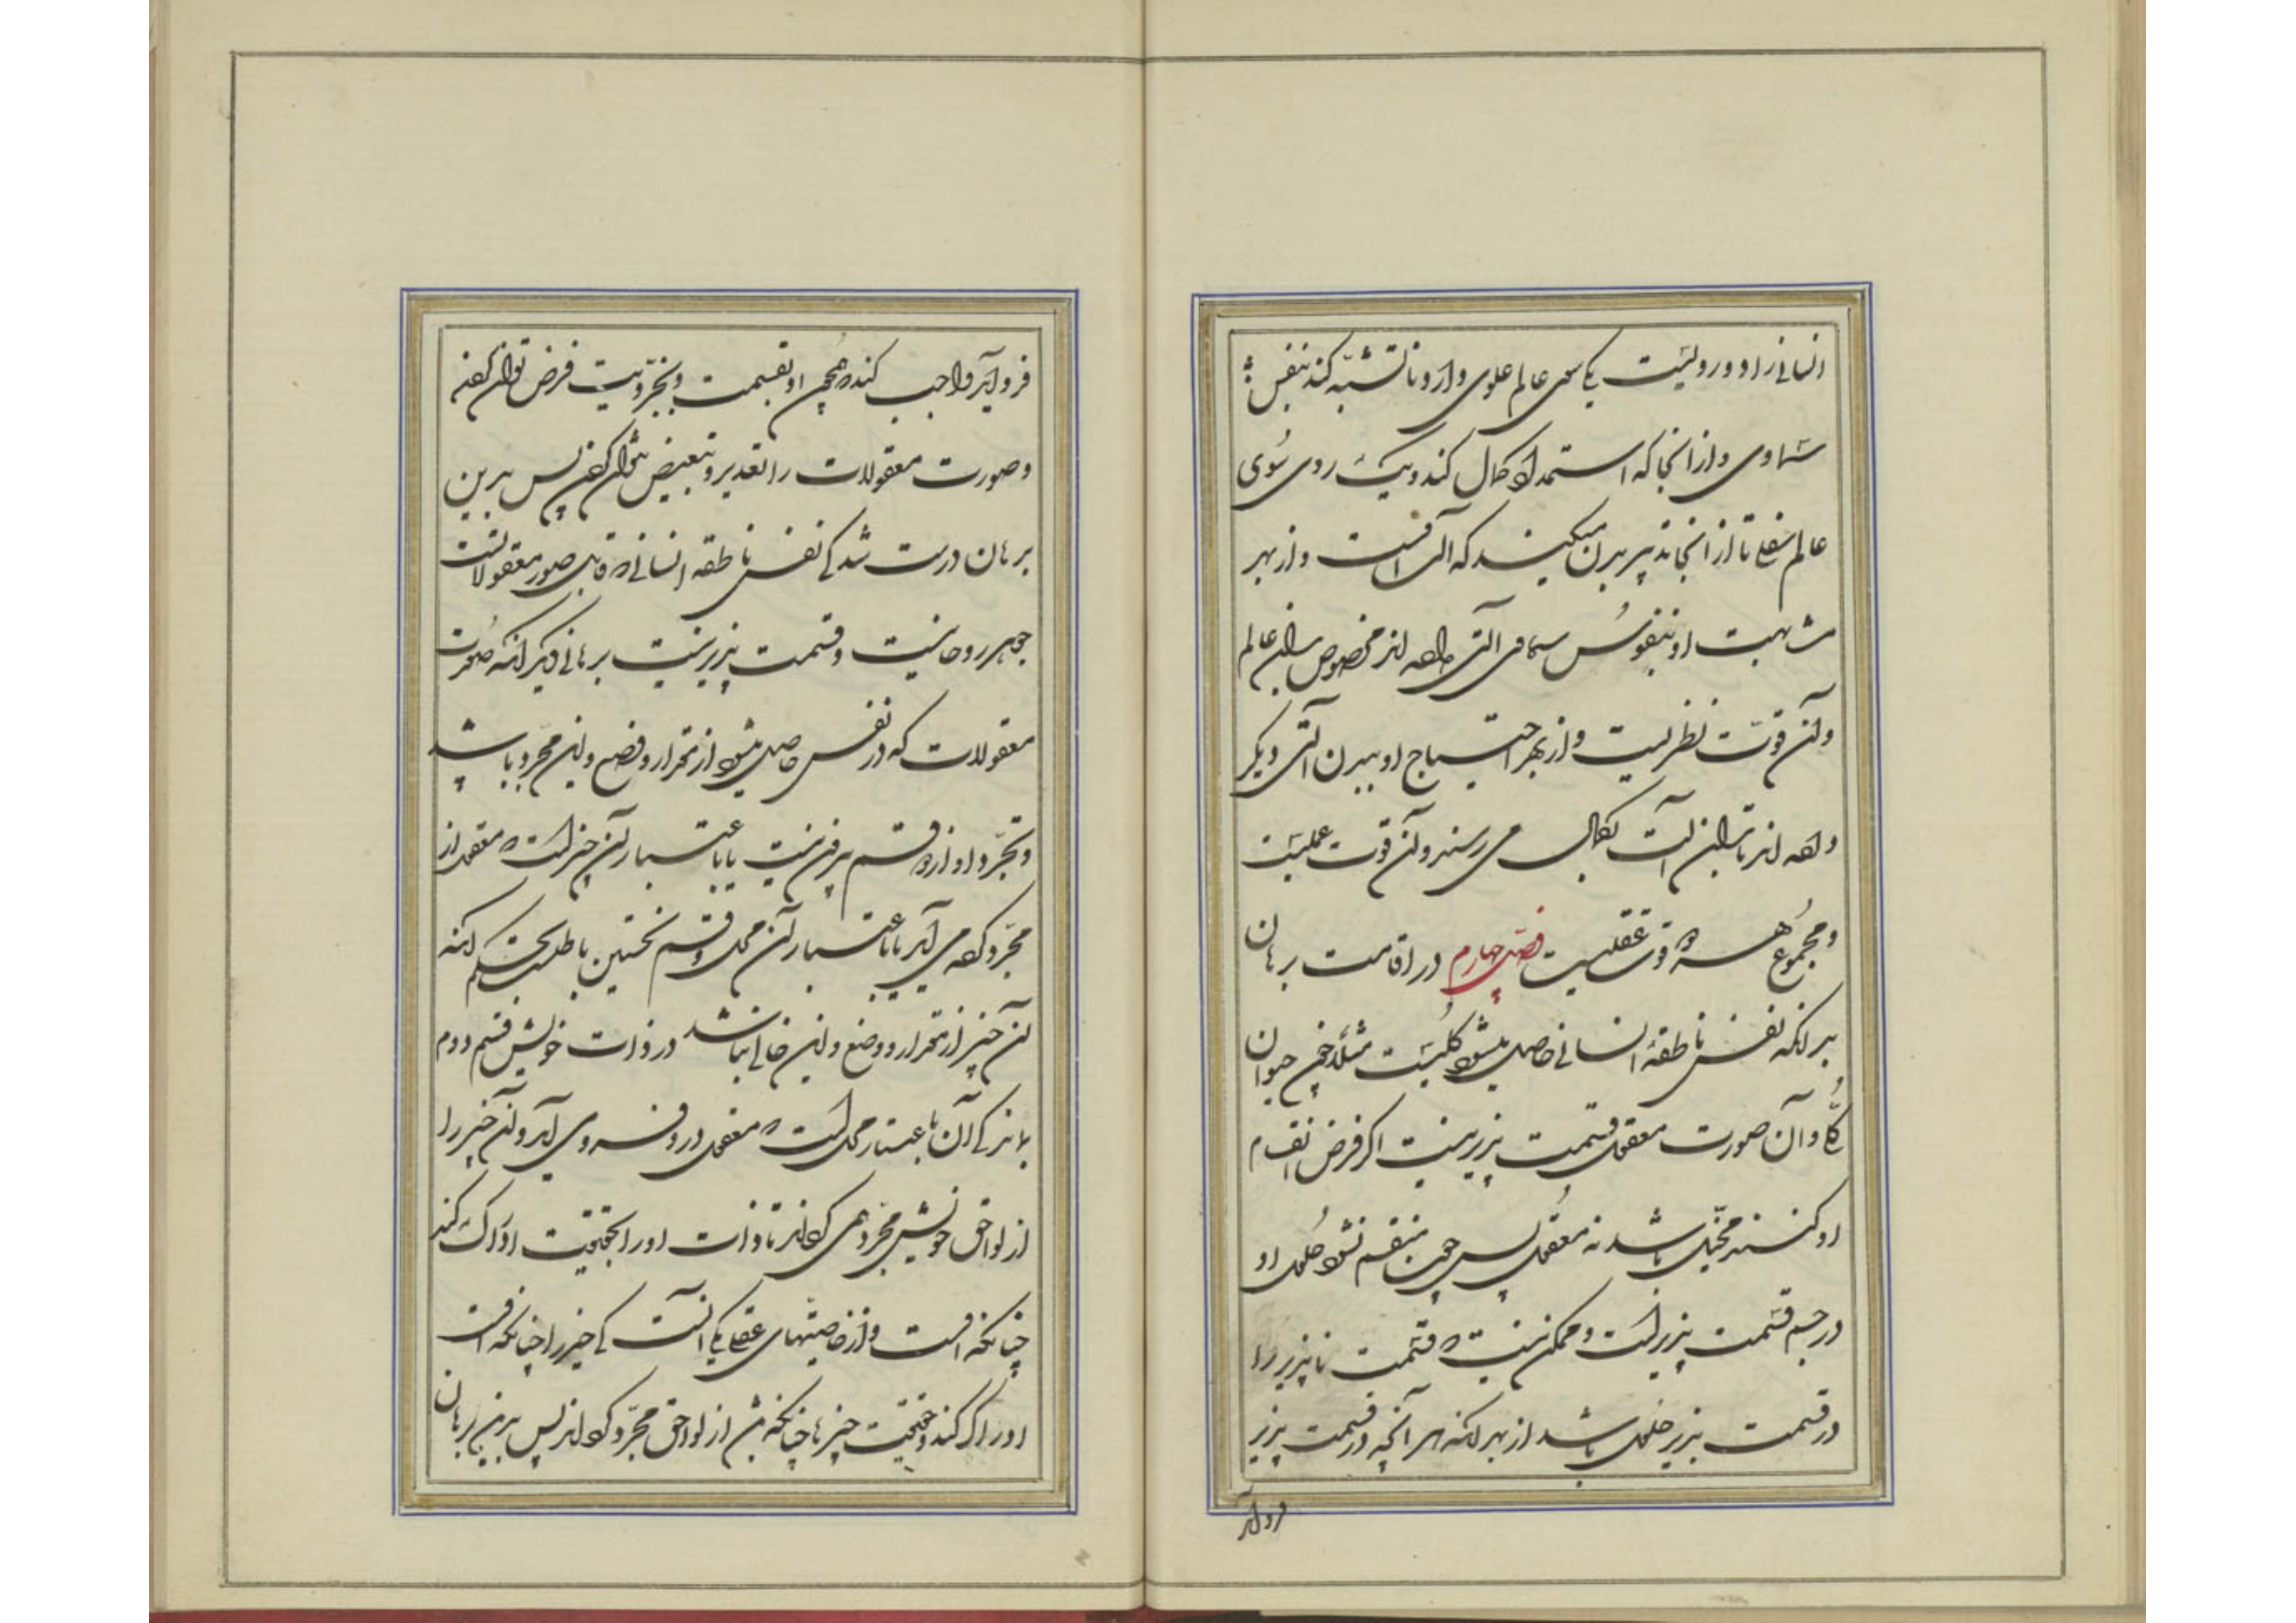 انسانی را دو رویست یکی سوی عالم علوی دارد تا تشبه کند بنفس
سماوی و از آنجا که استمداد کمال کند و یک روی سوی
عالم سفلی تا از آنجا تدبیر بدن میکند که آلت اوست و از بهر
مشابهت او بنفوس سماوی آلتی داده‌اند مخصوص بدان عالم
و آن قوت نظریست و از بهر احتیاج او ببدن آلتی دیگر
داده‌اند تا بدان آلت بکمال می رسند و آن قوت عملیست
و مجموع هر دو قوت عقلیست فصل چهارم در اقامت برهان
بر آنکه نفس ناطقهٔ انسانی حاصل میشود کلیست مثلا چون حیوان
کلی و آن صورت معقول قسمت پذیر نیست اگر فرض انقسام
او کنند متخیل باشد نه معقول پس چون منقسم نشود حلول او
در جسم قسمت پذیر است و ممکن نیست که قسمت ناپذیر را
در قسمت پذیر حلول باشد از بهر آنکه هر آنچه در قسمت پذیر
فرو آید
فرو آید واجب کند همچون او بقسمت و تجزیت فرض توان کردن
و صورت معقولات را تقدیر و تبعیض نتوان کردن پس بدین
برهان درست شد کی نفس ناطقه انسانی که قابل صور معقولاتست
جوهر روحانیست و قسمت پذیر نیست برهانی دیگر آنکه صورت
معقولات که در نفس حاصل میشود از مقدار و وضع و این مجرد باشد
و تجرد او از دو قسم بیرون نیست یا باعتبار آن چیز است که معقول از
مجرد کرده می آید یا باعتبار آن محل و قسم نخستین باطلست بحکم آنکه
آن چیز از مقدار و وضع و این خالی نباشد در ذات خویش قسم دوم
بماند کی آن باعتبار محل است که معقول در وی فرو می آید و آن چیز را
از لواحق خویش مجرد می گرداند تا ذات او را بحقیقت ادراک کند
چنانکه اوست و از خاصیتهای عقل یکی آنست کی چیز را چنانکه اوست
ادراک کند و حقیقت چیزها چنانکه هست از لواحق مجرد گرداند پس بدین برهان